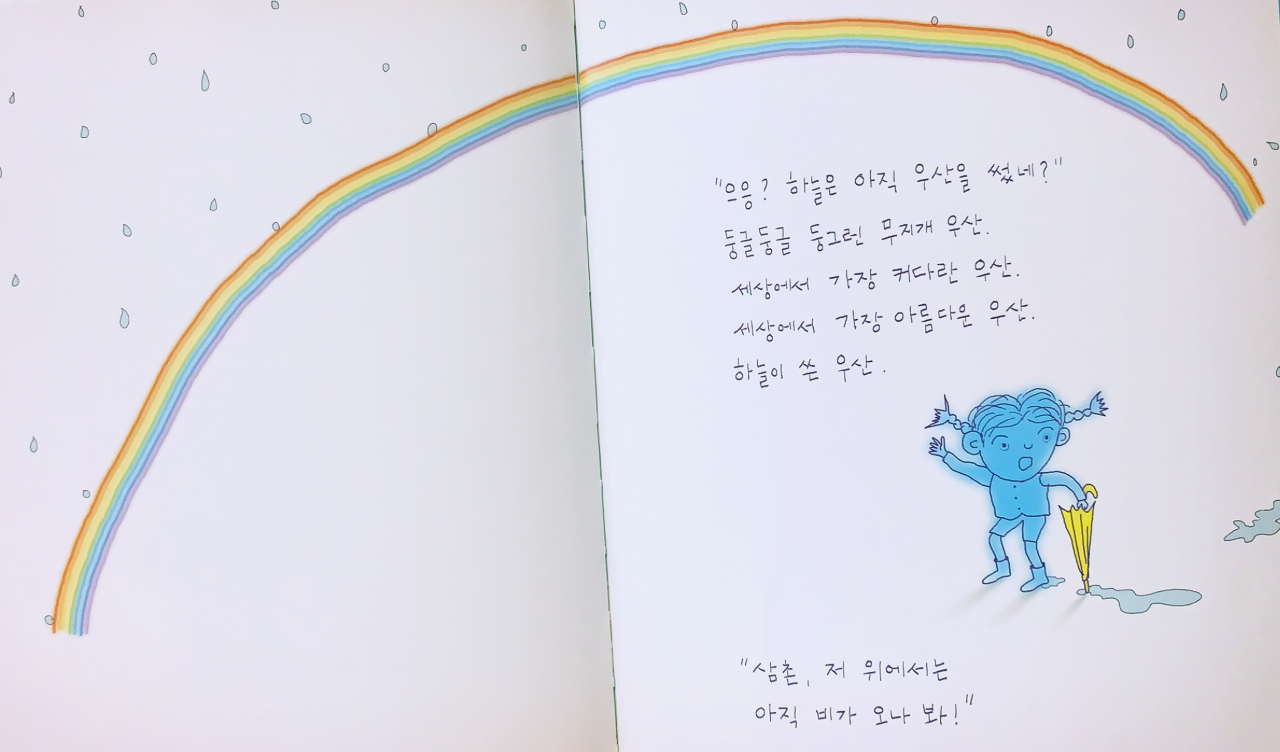 "으응? 하늘은 아직 우산을 썼네?"
둥글둥글 둥그런 무지개 우산.
세상에서 가장 커다란 우산.
세상에서 가장 아름다운 우산.
하늘이 쓴 우산.
"삼촌, 저 위에서는
아직 비가 오나 봐!"